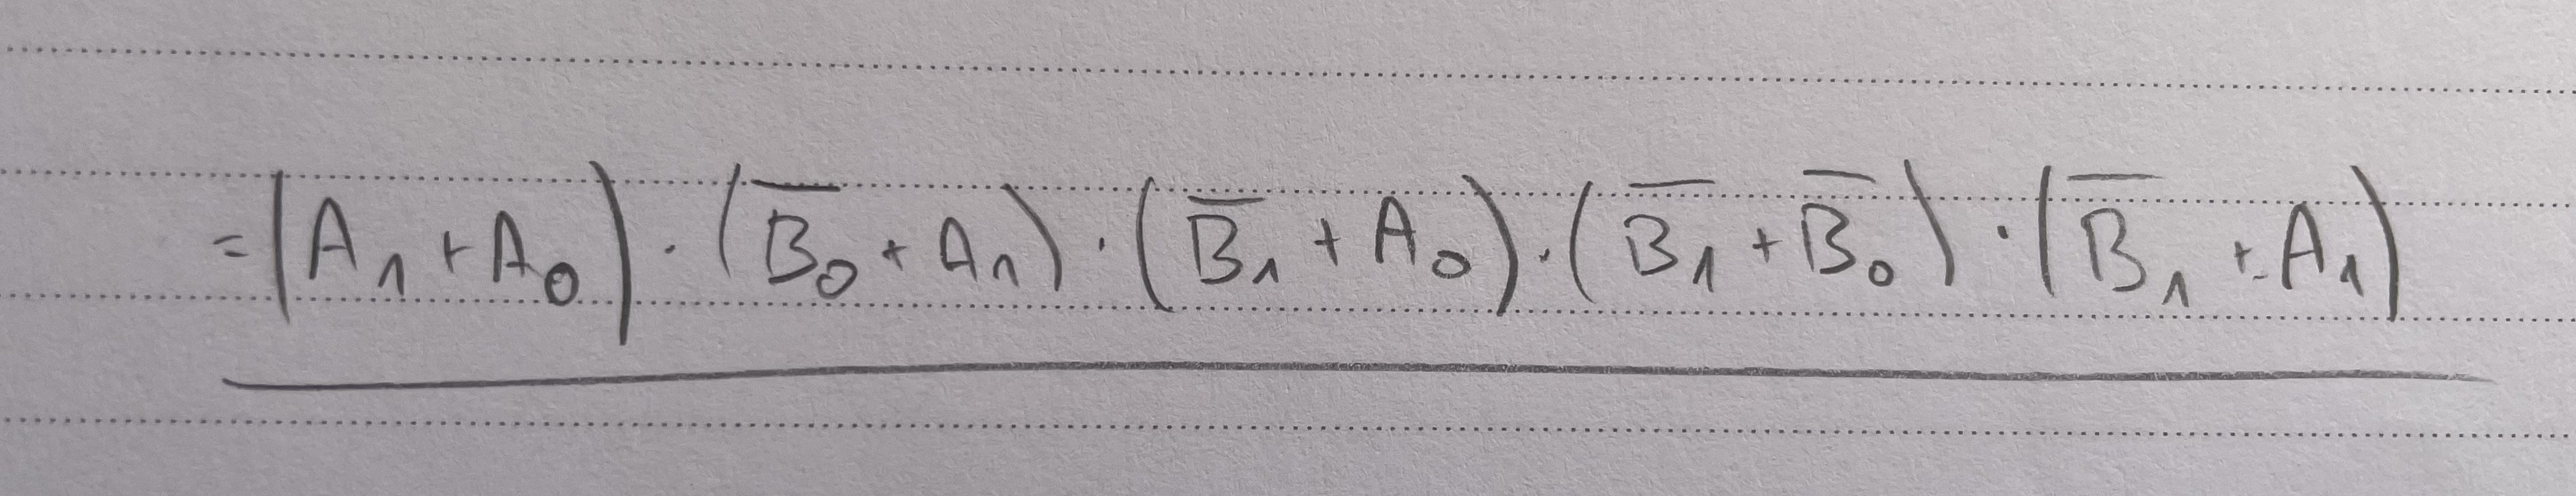 = (A₁ + A₀) · (B̅₀ + A₁) · (B̅₁ + A₀) · (B̅₁ + B̅₀) · (B̅₁ + A₁)